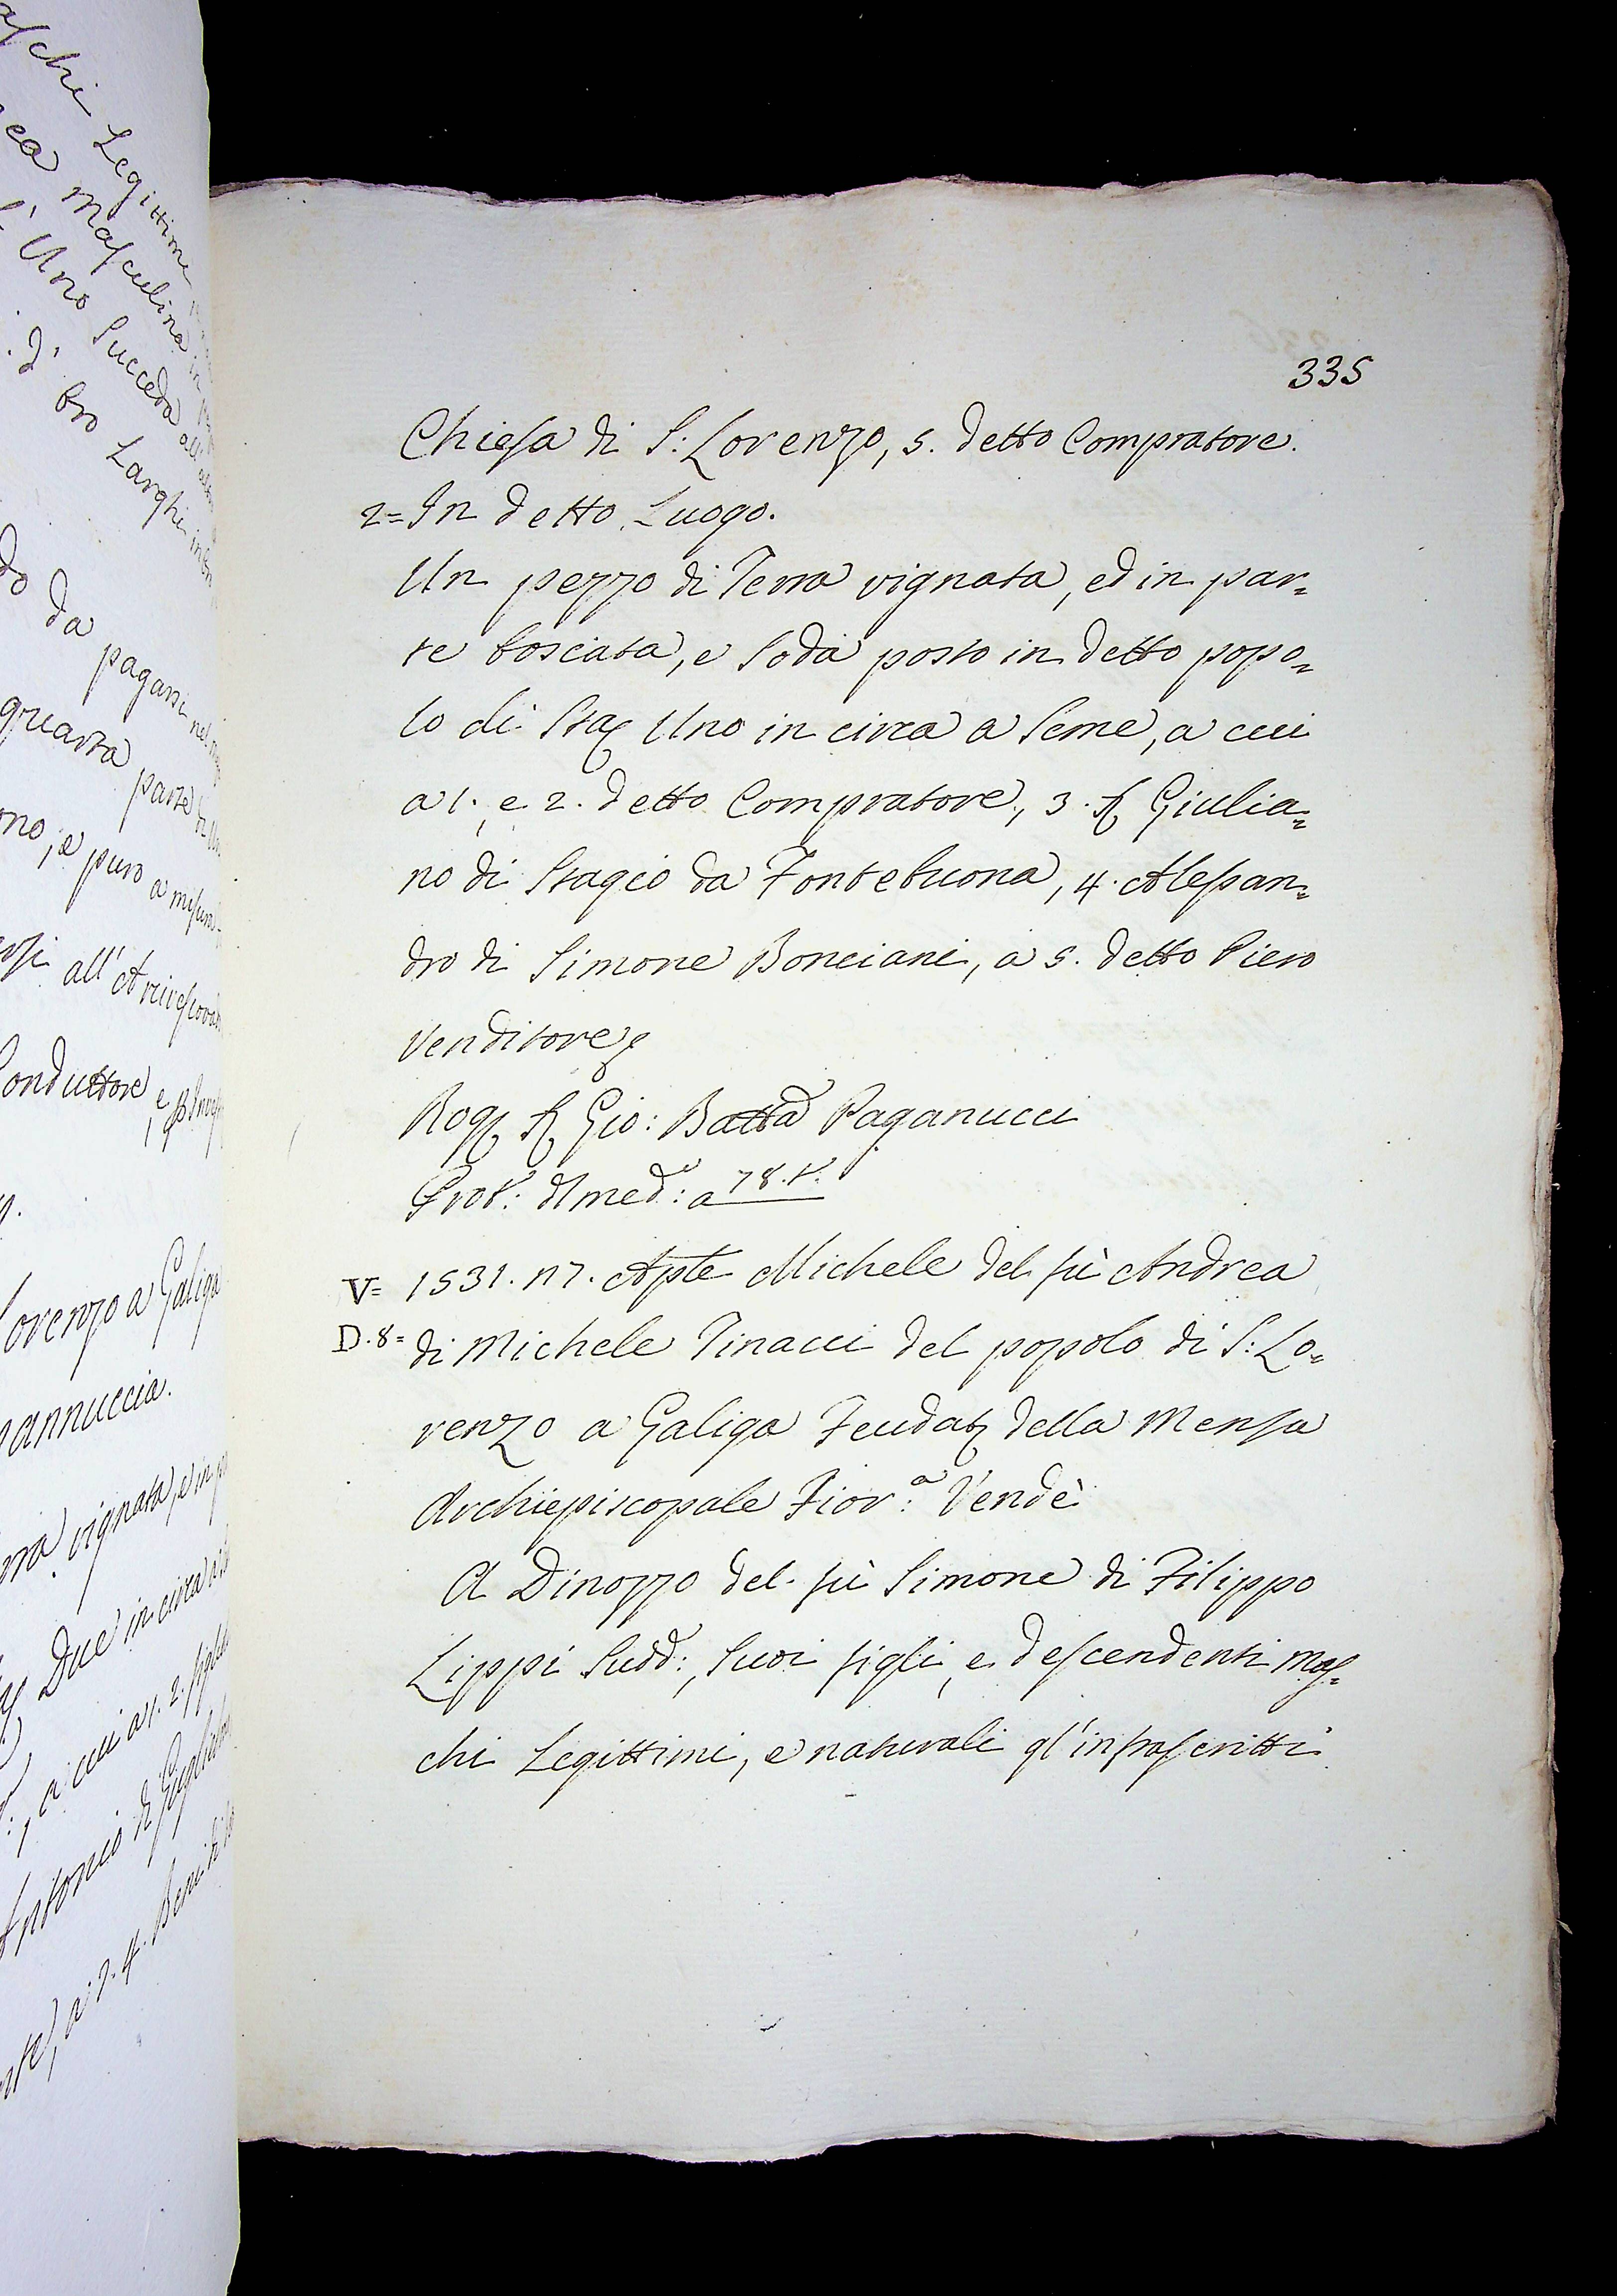 335
Chiesa di S: Lorenzo, 5. detto Compratore.
2= In detto Luogo.
Un pezzo di Terra vignata, ed in par=
te boscata, e Soda posto in detto popo=
lo di Sta: Uno in circa a Seme, a cui
a 1. e 2. detto Compratore, 3. S. Giulia=
no di Stagio da Fontebuona, 4. Alessan=
dro di Simone Bonciani, a 5. detto Piero
Venditore
Rog. S. Gio: Batta Paganucci
Prot: Amed: a 78. t.
V= 1531. n 7. Aple Michele del fù Andrea
D. 8= di Michele Tinacci del popolo di S: Lo=
renzo a Galiga Feudat. della Mensa
Archiepiscopale Fior:a Vendè
A Dinozzo del fù Simone di Filippo
Lippi Sudd:, Suoi figli, e descendenti mas=
chi Legittimi, e naturali gl'infrascritti
aschi Legittimi
nea Masculina in
l'Uno Succeda all
d'oro Larghi in
do da pagarsi nel
quarta parte
ono, e puro a misura
all'Arcivescova
Conduttore, e
Lorenzo a Galiga
nannuccia.
rra vignata, e in p
Due in circa a
:, a cui a 1. 2. figli
Antonio di Guglielmo
nte, a 3. 4. Beni di